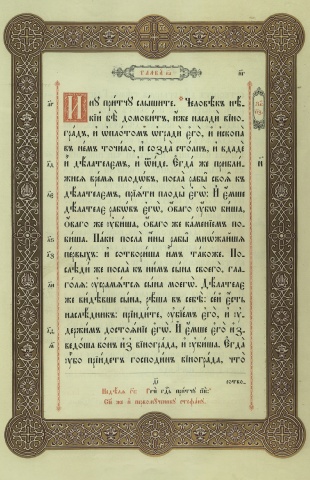 Ину притчу слышите. Человѣкъ нѣ-
кій бѣ домовитъ, иже насади вино-
градъ, и оплотомъ огради его, и ископа
въ немъ точило, и созда столпъ, и вдаде
и дѣлателемъ, и ѿиде. Егда же прибли-
жися время плодѡвъ, посла рабы своѧ къ
дѣлателемъ, пріѧти плоды егѡ: И емше
дѣлателе рабѡвъ егѡ, оваго ꙋбѡ биша,
оваго же ꙋбиша, оваго же каменіемъ по-
биша. Паки посла ины рабы мнѡжайшѧ
первыхъ: и сотвориша имъ такоже. По-
слѣди же посла къ нимъ сына своего, гла-
голѧ: ꙋсрамѧтсѧ сына моегѡ. Дѣлателе
же видѣвше сына, рѣша въ себѣ: сей есть
наслѣдникъ: пріидите, ꙋбіемъ его, и ꙋ-
держимъ достоѧніе егѡ. И емше его из-
ведоша вонъ из винограда, и ꙋбиша. Егда
ꙋбо пріидетъ господинъ винограда, что
сотво.